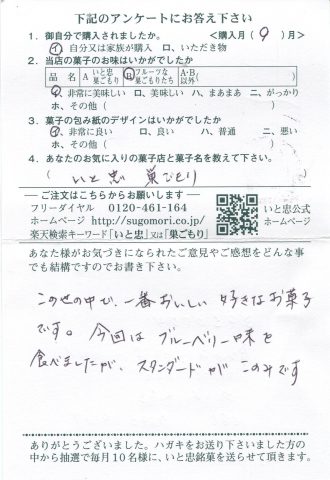 下記のアンケートにお答え下さい
1. 御自分で購入されましたか。 <購入月( 9 )月>
イ、自分又は家族が購入 ロ、いただき物
2. 当店の菓子のお味はいかがでしたか
品 名 A いと忠巣ごもり B フルーツな巣ごもりたち A・B以外( )
イ、非常に美味しい ロ、美味しい ハ、まあまあ ニ、がっかり
ホ、その他 ( )
3. 菓子の包み紙のデザインはいかがでしたか
イ、非常に良い ロ、良い ハ、普通 ニ、悪い
ホ、その他 ( )
4. あなたのお気に入りの菓子店と菓子名を教えて下さい。
( いと忠 巣ごもり )
ご注文はこちらからお願いします
フリーダイヤル 0120-461-164
ホームページ http://sugomori.co.jp/
楽天検索キーワード「いと忠」又は「巣ごもり」
いと忠公式
ホームページ
あなた様がお気づきになられたご意見やご感想をどんな事
でも結構ですのでお書き下さい。
この世の中で、一番おいしい 好きなお菓子
です。今回は ブルーベリー味を
食べましたが、スタンダードが このみです
ありがとうございました。ハガキをお送り下さいました方の
中から抽選で毎月10名様に、いと忠銘菓を送らせて頂きます。